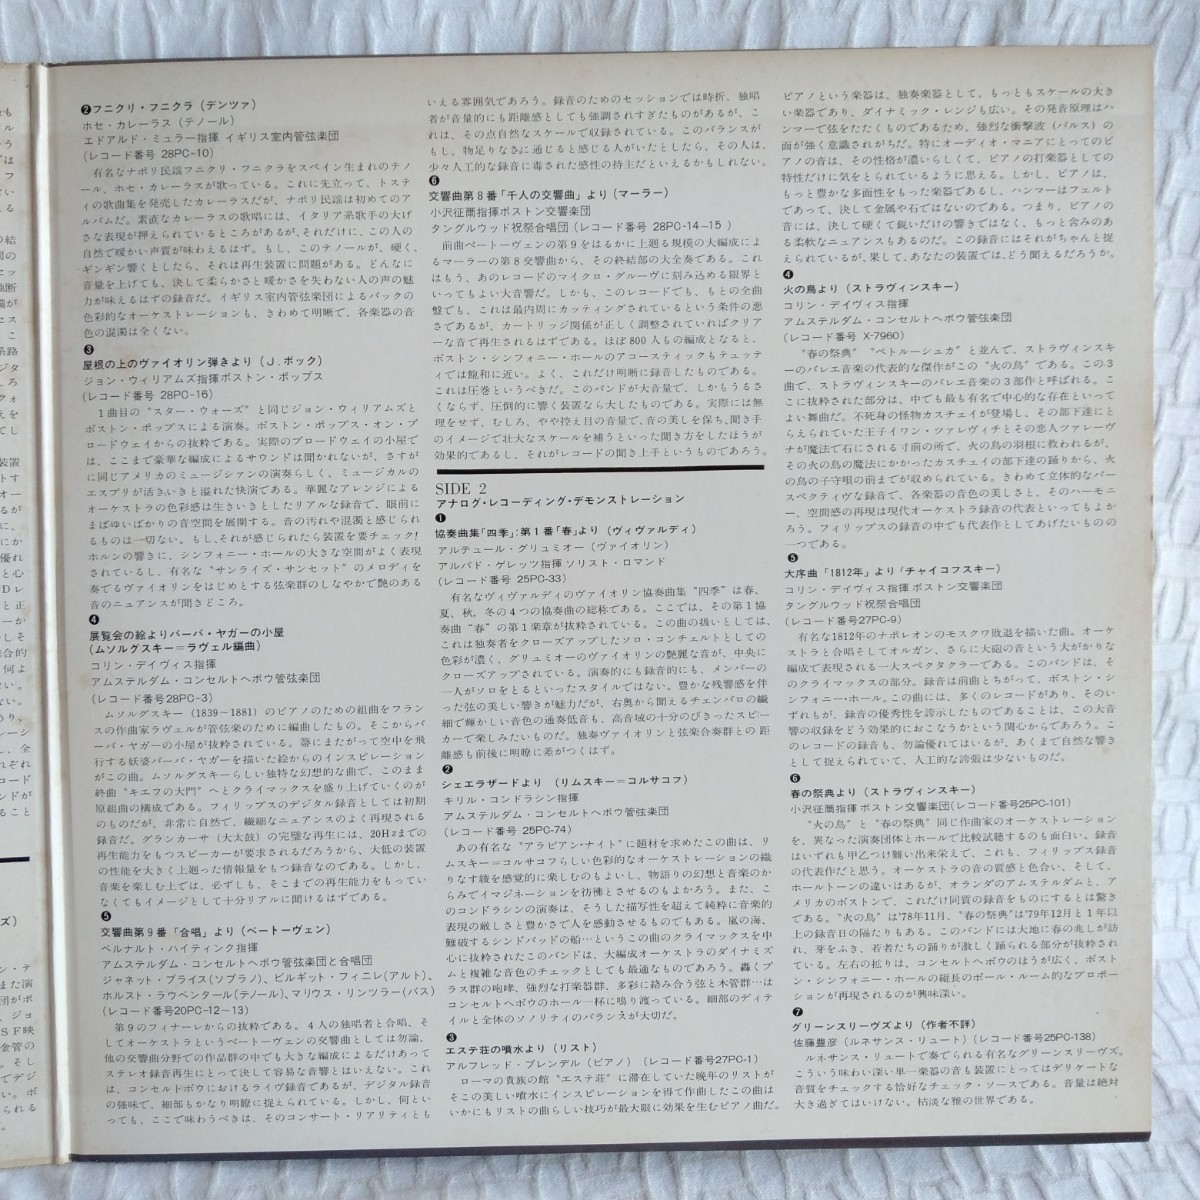 ❷フニクリ・フニクラ（デンツァ）
ホセ・カレーラス（テノール）
エドアルド・ミュラー指揮 イギリス室内管弦楽団
（レコード番号 28PC-10）
　有名なナポリ民謡フニクリ・フニクラをスペイン生まれのテノ
ール、ホセ・カレーラスが歌っている。これに先立って、トステ
ィの歌曲集を発売したカレーラスだが、ナポリ民謡は初めてのア
ルバムだ。素直なカレーラスの歌唱には、イタリア系歌手の大げ
さな表現が押えられているところがあるが、それだけに、この人の
自然で暖かい声質が味わえるはず。もし、このテノールが、硬く、
ギンギン響くとしたら、それは再生装置に問題がある。どんなに
音量を上げても、決して柔らかさと暖かさを失わない人の声の魅
力が味えるはずの録音だ。イギリス室内管弦楽団によるバックの
色彩的なオーケストレーションも、きわめて明晰で、各楽器の音
色の混濁は全くない。
❸
屋根の上のヴァイオリン弾きより（J．ボック）
ジョン・ウィリアムズ指揮ボストン・ポップス
（レコード番号 28PC-16）
　1曲目の“スター・ウォーズ”と同じジョン・ウィリアムズと
ボストン・ポップスによる演奏。ボストン・ポップス・オン・ブ
ロードウェイからの抜粋である。実際のブロードウェイの小屋で
は、ここまで豪華な編成によるサウンドは聞かれないが、さすが
に同じアメリカのミュージシァンの演奏らしく、ミュージカルの
エスプリが活きいきと溢れた快演である。華麗なアレンジによる
オーケストラの色彩感は生きいきとしたリアルな録音で、眼前に
まばゆいばかりの音空間を展開する。音の汚れや混濁と感じられ
るものは一切ない。もし、それが感じられたら装置を要チェック!
ホルンの響きに、シンフォニー・ホールの大きな空間がよく表現
されているし、有名な“サンライズ・サンセット”のメロディを
奏でるヴァイオリンをはじめとする弦楽群のしなやかで艶のある
音のニュアンスが聞きどころ。
❹
展覧会の絵よりバーバ・ヤガーの小屋
（ムソルグスキー＝ラヴェル編曲）
コリン・デイヴィス指揮
アムステルダム・コンセルトヘボウ管弦楽団
（レコード番号28PC-3）
　ムソルグスキー（1839〜1881）のピアノのための組曲をフラン
スの作曲家ラヴェルが管弦楽のために編曲したもの。そこからバ
ーバ・ヤガーの小屋が抜粋されている。箒にまたがって空中を飛
行する妖婆バーバ・ヤガーを描いた絵からのインスピレーション
がこの曲。ムソルグスキーらしい独特な幻想的な曲で、このまま
終曲“キエフの大門”へとクライマックスを盛り上げていくのが
原組曲の構成である。フィリップスのデジタル録音としては初期
のものだが、非常に自然で、繊細なニュアンスのよく再現される
録音だ。グランカーサ（大太鼓）の完璧な再生には、20Hzまでの
再生能力をもつスピーカーが要求されるだろうから、大低の装置
の性能を大きく上廻った情報量をもつ録音なのである。しかし、
音楽を楽しむ上では、必ずしも、そこまでの再生能力をもってい
なくてもイメージとして十分リアルに聞けるはずである。
❺
交響曲第9番「合唱」より（ベートーヴェン）
ベルナルト・ハイティンク指揮
アムステルダム・コンセルトヘボウ管弦楽団と合唱団
ジャネット・プライス（ソプラノ）、ビルギット・フィニレ（アルト）、
ホルスト・ラウベンタール（テノール）、マリウス・リンツラー（バス）
（レコード番号20PC-12〜13）
　第9のフィナーレからの抜粋である。4人の独唱者と合唱、そ
してオーケストラというベートーヴェンの交響曲としては勿論、
他の交響曲分野での作品群の中でも大きな編成によるだけあって
ステレオ録音再生にとって決して容易な音響とはいえない。これ
は、コンセルトボウにおけるライヴ録音であるが、デジタル録音
の強味で、細部もかなり明瞭に捉えられている。しかし、何とい
っても、ここで味わうべきは、そのコンサート・リアリティとも
いえる雰囲気であろう。録音のためのセッションでは時折、独唱
者が音量的にも距離感としても強調されすぎたものがあるが、こ
れは、その点自然なスケールで収録されている。このバランスが
もし、物足りなさに通じると感じる人がいたとしたら、その人は、
少々人工的な録音に毒された感性の持主だといえるかもしれない。
❻
交響曲第8番「千人の交響曲」より（マーラー）
小沢征爾指揮ボストン交響楽団
タングルウッド祝祭合唱団（レコード番号 28PC-14-15 ）
　前曲ベートーヴェンの第9をはるかに上廻る規模の大編成に
よるマーラーの第8交響曲から、その終結部の大全奏である。これ
はもう、あのレコードのマイクロ・グルーヴに刻み込める限界と
いってもよい大音響だ。しかも、このレコードでも、もとの全曲
盤でも、これは最内周にカッティングされているという条件の悪
さであるが、カートリッジ関係が正しく調整されていればクリア
ーな音で再生されるはずである。ほぼ800人もの編成となると、
ボストン・シンフォニー・ホールのアコースティックもテュッテ
ィでは飽和に近い。よく、これだけ明晰に録音したものである。
これは圧巻というべきだ。このバンドが大音量で、しかもうるさ
くならず、圧倒的に響く装置なら大したものである。実際には無
理をせず、むしろ、やや控え目の音量で、音の美しを保ち、聞き手
のイメージで壮大なスケールを補うといった聞き方をしたほうが
効果的であるし、それがレコードの聞き上手というものであろう。
SIDE 2
アナログ・レコーディング・デモンストレーション
❶
協奏曲集「四季」：第1番「春」より（ヴィヴァルディ）
アルテュール・グリュミオー（ヴァイオリン）
アルパド・ゲレッツ指揮 ソリスト・ロマンド
（レコード番号 25PC-33）
　有名なヴィヴァルディのヴァイオリン協奏曲集“四季”は春、
夏、秋、冬の4つの協奏曲の総称である。ここでは、その第1協
奏曲“春”の第1楽章が抜粋されている。この曲の扱いとしては、
これは独奏者をクローズアップしたソロ・コンチェルトとしての
色彩が濃く、グリュミオーのヴァイオリンの艶麗な音が、中央に
クローズアップされている。演奏的にも録音的にも、メンバーの
一人がソロをとるといったスタイルではない。豊かな残響感を伴
った弦の美しい響きが魅力だが、右奥から聞えるチェンバロの繊
細で輝かしい音色の通奏低音も、高音域の十分のびきったスピー
カーで楽しみたいものだ。独奏ヴァイオリンと弦楽合奏群との距
離感も前後に明瞭に差がつくはず。
❷
シェエラザードより （リムスキー＝コルサコフ）
キリル・コンドラシン指揮
アムステルダム・コンセルトヘボウ管弦楽団
（レコード番号 25PC-74）
　あの有名な“アラビアン・ナイト”に題材を求めたこの曲は、リ
ムスキー＝コルサコフらしい色彩的なオーケストレーションの織
りなす綾を感覚的に楽しむのもよいし、物語りの幻想と音楽のか
らみでイマジネーションを彷彿とさせるのもよかろう。また、こ
のコンドラシンの演奏は、そうした描写性を超えて純粋に音楽的
表現の厳しさと豊かさで人を感動させるものでもある。嵐の海、
難破するシンドバッドの船…というこの曲のクライマックスを中
心に抜粋されたこのバンドは、大編成オーケストラのダイナミズ
ムと複雑な音色のチェックとしても最適なものであろう。轟くブ
ラス群の咆哮、強烈な打楽器群、多彩に絡み合う弦と木管群…は
コンセルトヘボウのホール一杯に鳴り渡っている。細部のディテ
イルと全体のソノリティのバランスが大切だ。
❸
エステ荘の噴水より（リスト）
アルフレッド・ブレンデル（ピアノ）（レコード番号27PC-1）
　ローマの貴族の館“エステ荘”に滞在していた晩年のリストが
そこの美しい噴水にインスピレーションを得て作曲したこの曲は
いかにもリストの曲らしい技巧が最大限に効果を生むピアノ曲だ。
ピアノという楽器は、独奏楽器として、もっともスケールの大き
い楽器であり、ダイナミック・レンジも広い。その発音原理はハ
ンマーで弦をたたくものであるため、強烈な衝撃波（パルス）の
面が強く意識されがちだ。特にオーディオ・マニアにとってのピ
アノの音は、その性格が濃いらしくて、ピアノの打楽器としての
特性だけに気をとられているように思える。しかし、ピアノは、
もっと豊かな多面性をもった楽器であるし、ハンマーはフェルト
であって、決して金属や石ではないのである。つまり、ピアノの
音には、決して硬く鋭いだけの響きではなく、もっと含みのあ
る柔軟なニュアンスもあるのだ。この録音にはそれがちゃんと捉
えられているが、果して、あなたの装置では、どう聞えるだろうか。
❹
火の鳥より（ストラヴィンスキー）
コリン・デイヴィス指揮
アムステルダム・コンセルトヘボウ管弦楽団
（レコード番号 X-7960）
　“春の祭典”“ペトルーシュカ”と並んで、ストラヴィンスキ
ーのバレエ音楽の代表的な傑作がこの“火の鳥”である。この3
曲で、ストラヴィンスキーのバレエ音楽の3部作と呼ばれる。こ
こに抜粋された部分は、中でも最も有名で中心的な存在といって
よい舞曲だ。不死身の怪物カスチェイが登場し、その部下達にと
らえられていた王子イワン・ツァレヴィチとその恋人ツァレーヴ
ナが魔法で石にされる寸前の所で、火の鳥の羽根に救われるが、
その火の鳥の魔法にかかったカスチェイの部下達の踊りから、火
の鳥の子守唄の前までが収められている。きわめて立体的なパー
スペクティヴな録音で、各楽器の音色の美しさと、そのハーモニ
ー、空間感の再現は現代オーケストラ録音の代表といってもよか
ろう。フィリップスの録音の中でも代表作としてあげたいものの
一つである。
❺
大序曲「1812年」より（チャイコフスキー）
コリン・デイヴィス指揮 ボストン交響楽団
タングルウッド祝祭合唱団
（レコード番号27PC-9）
　有名な1812年のナポレオンのモスクワ敗退を描いた曲。オーケ
ストラと合唱そしてオルガン、さらに大砲の音という大がかりな
編成で表現される一大スペクタクラーである。このバンドは、そ
のクライマックスの部分。録音は前曲とちがって、ボストン・シ
ンフォニー・ホール。この曲には、多くのレコードがあり、そのい
ずれもが、録音の優秀性を誇示したものであることは、この大音
響の収録をどう効果的におこなうかという関心からであろう。こ
のレコードの録音も、勿論優れてはいるが、あくまで自然な響き
として捉えられていて、人工的な誇張は少ないものだ。
❻
春の祭典より（ストラヴィンスキー）
小沢征爾指揮 ボストン交響楽団（レコード番号25PC-101）
　“火の鳥”と“春の祭典”同じ作曲家のオーケストレーション
を、異なった演奏団体とホールで比較試聴するのも面白い。録音
はいずれも甲乙つけ難い出来栄えで、これも、フィリップス録音
の代表作だと思う。オーケストラの音の質感と色合い、そして、
ホールトーンの違いはあるが、オランダのアムステルダムと、ア
メリカのボストンで、これだけ同質の録音をものにするとは驚き
である。“火の鳥”は'78年11月、“春の祭典”は'79年12月と1年以
上の録音日の隔たりもある。このバンドには大地に春の兆しが訪
れ、芽をふき、若者たちの踊りが激しく踊られる部分が抜粋され
ている。左右の拡りは、コンセルトヘボウのほうが広く、ボスト
ン・シンフォニー・ホールの縦長のボール・ルーム的なプロポー
ションが再現されるのが興味深い。
❼
グリーンスリーヴズより（作者不詳）
佐藤豊彦（ルネサンス・リュート）（レコード番号25PC-138）
　ルネサンス・リュートで奏でられる有名なグリーンスリーヴズ。
こういう味わい深い単一楽器の音も装置にとってはデリケートな
音質をチェックする恰好なチェック・ソースである。音量は絶対
大き過ぎてはいけない。枯淡な雅の世界である。